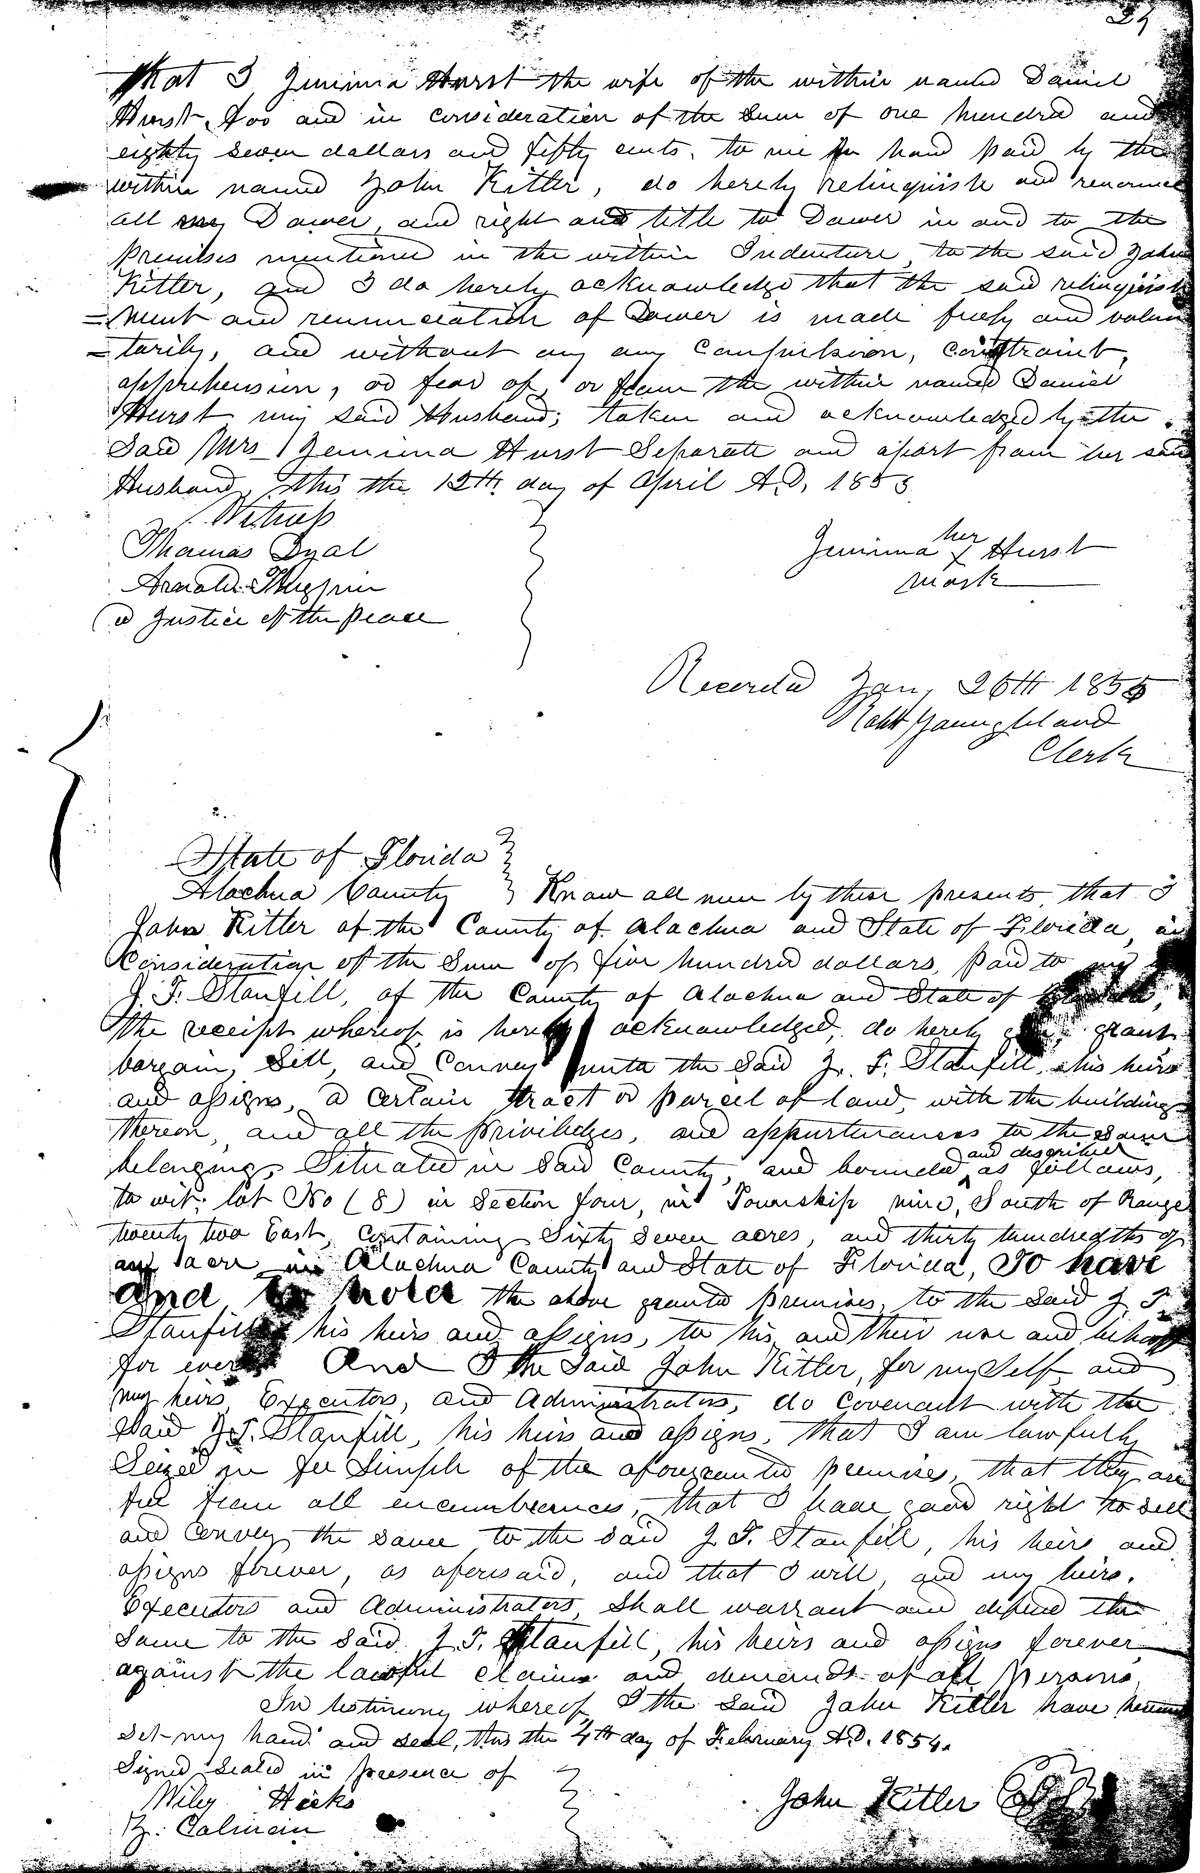 That I Jemima Hurst the wife of the within named Daniel
Hurst, for and in consideration of the Sum of one hundred and
eighty seven dollars and fifty cents, to me in hand paid by the
within named John Kitler, do hereby relinquish and renounce
all my Dower, and right and title to Dower in and to the
premises mentioned in the within Indenture, to the said John
Kitler, and I do hereby acknowledge that the said relinquish
=ment and renunciation of Dower is made freely and volun
=tarily, and without any any Compulsion, constraint,
apprehension, or fear of, or from the within named Daniel
Hurst my said Husband; taken and acknowledged by the
Said Mrs Jemima Hurst Separate and apart from her said
Husband, this the 12th day of April A.D. 1853
Witness
Thomas Dyal
Arnold Thigpin
a Justice of the peace
her
Jemima x Hurst
mark
Recorded Jany 26th 1855
Robt Youngbland
Clerk
State of Florida
Alachua County Know all men by these presents, that I
John Kitler of the County of Alachua and State of Florida, in
Consideration of the Sum of five hundred dollars, paid to me
J. T. Stanfill, of the County of Alachua and State of
the receipt whereof is hereby acknowledged, do hereby grant
bargain, Sell, and Convey unto the Said J. T. Stanfill, his heirs
and assigns, a certain tract or parcel of land, with the buildings
thereon, and all the priviledges, and appurtenances to the same
belonging, Situated in Said County, and bounded and described as follows,
to wit: lot No (8) in Section four, in Township nine, South of Range
twenty two East, Containing Sixty Seven acres, and thirty hundredths of
an acre in Alachua County and State of Florida, To have
and to hold the above granted premises, to the Said J. T.
Stanfill his heirs and assigns, to his and their use and behoof
for ever And I the Said John Kitler, for my Self, and
my heirs, Executors, and Administrators, do Covenant with the
Said J. T. Stanfill, his heirs and assigns, that I am lawfully
Seized in fee Simple of the aforegranted premises, that they are
free from all encumbrances, that I have good right to sell
and convey the same to the said J. T. Stanfill, his heirs and
assigns forever, as aforesaid, and that I will, and my heirs,
Executors and Administrators, Shall warrant and defend the
Same to the Said J. T. Stanfill, his heirs and assigns forever,
against the lawful claims and demands of all persons,
In testimony whereof, I the said John Kitler have hereunto
set my hand and seal, this the 4th day of February A.D. 1854.
Signed Sealed in presence of
Wiley Hicks
John Kitler